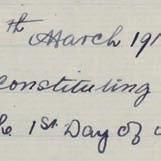 th March 191
constituting
he 1st Day of